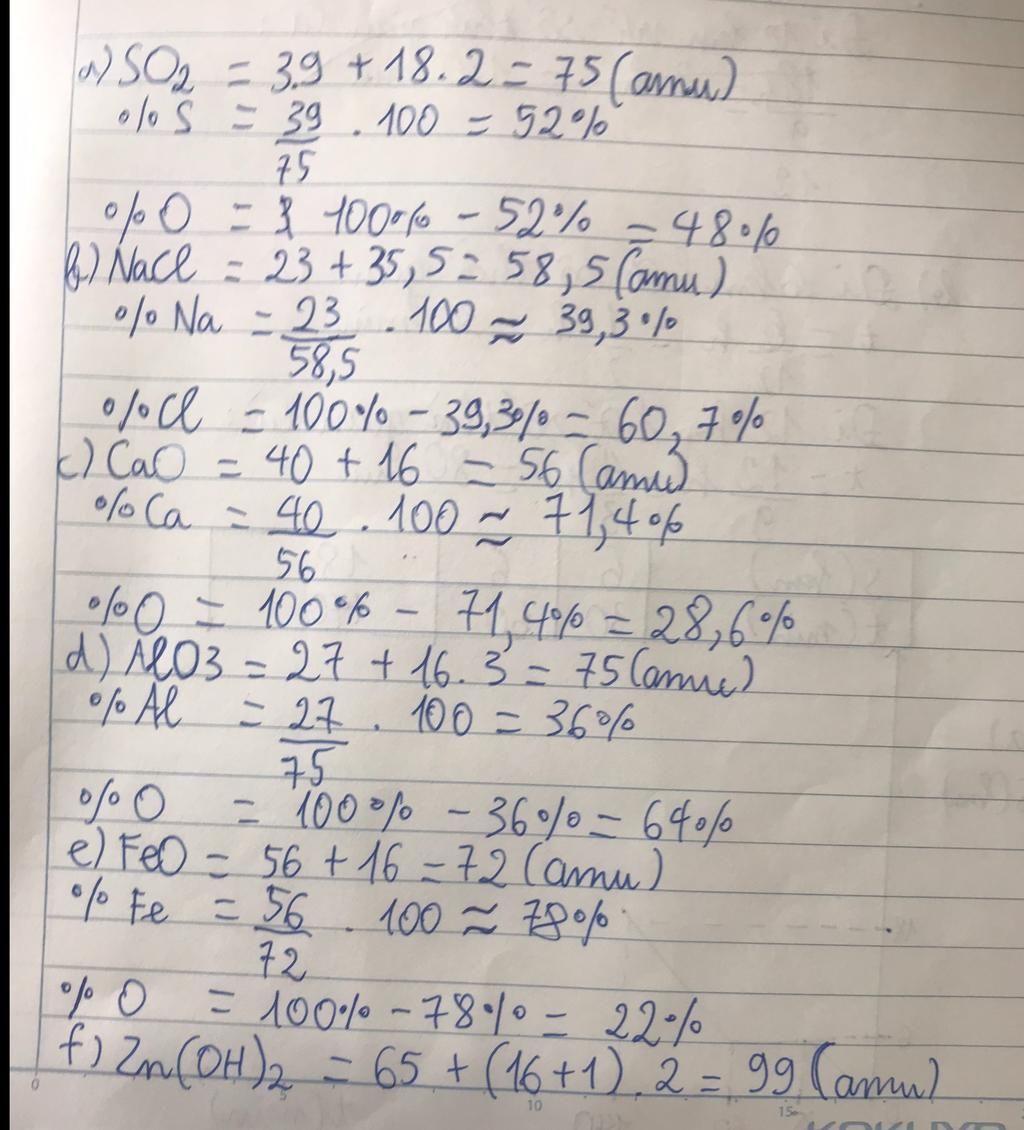 a) SO2 = 39 + 18. 2 = 75 (amu)
% S = 39/75 . 100 = 52%
% O = 100% - 52% = 48%
b) NaCl = 23 + 35,5 = 58,5 (amu)
% Na = 23/58,5 . 100 ≈ 39,3%
% Cl = 100% - 39,3% = 60,7%
c) CaO = 40 + 16 = 56 (amu)
% Ca = 40/56 . 100 ≈ 71,4%
% O = 100% - 71,4% = 28,6%
d) AlO3 = 27 + 16. 3 = 75 (amu)
% Al = 27/75 . 100 = 36%
% O = 100% - 36% = 64%
e) FeO = 56 + 16 = 72 (amu)
% Fe = 56/72 . 100 ≈ 78%
% O = 100% - 78% = 22%
f) Zn(OH)2 = 65 + (16+1) . 2 = 99 (amu)
0 5 10 15